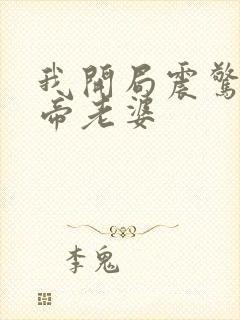 我開局震驚
帝老婆
李鬼